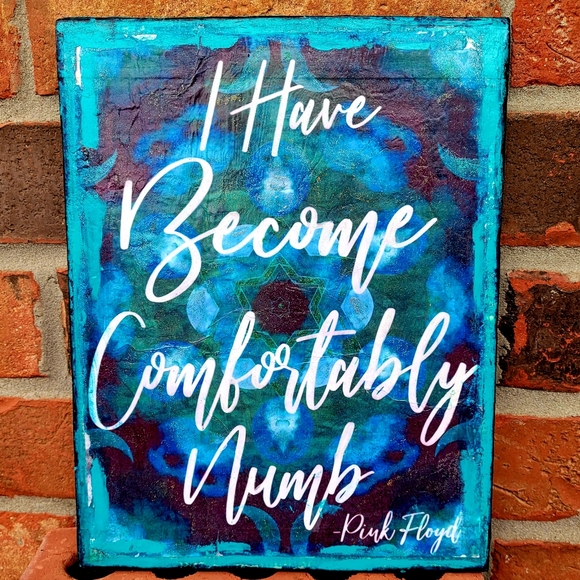 I Have
Become
Comfortably
Numb
-Pink Floyd